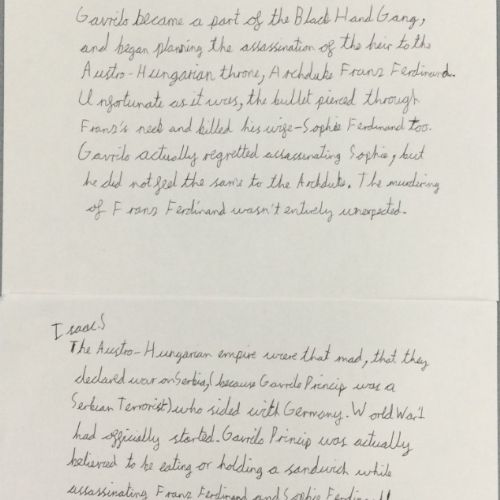 Gavrilo became a part of the Black Hand Gang,
and began planning the assassination of the heir to the
Austro-Hungarian throne, Archduke Franz Ferdinand.
Unfortunate as it was, the bullet pierced through
Franz's neck and killed his wife-Sophie Ferdinand too.
Gavrilo actually regretted assassinating Sophie, but
he did not feel the same to the Archduke. The murdering
of Franz Ferdinand wasn't entirely unexpected.
Isaac.S
The Austro-Hungarian empire were that mad, that they
declared war on Serbia, (because Gavrilo Princip was a
Serbian Terrorist) who sided with Germany. World War 1
had officially started. Gavrilo Princip was actually
believed to be eating or holding a sandwich while
assassinating Franz Ferdinand and Sophie Ferdinand